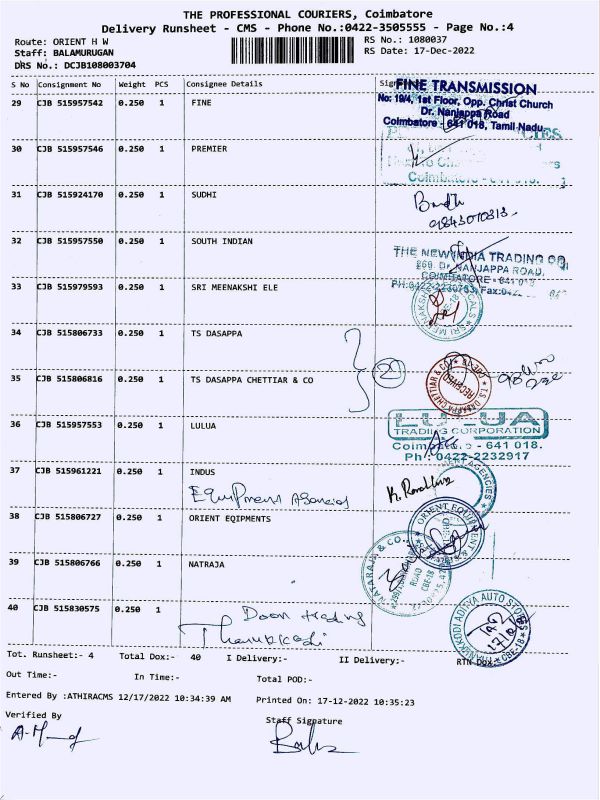 THE PROFESSIONAL COURIERS, Coimbatore
Delivery Runsheet - CMS - Phone No.:0422-3505555 - Page No.:4
Route: ORIENT H W
RS No.: 1080037
Staff: BALAMURUGAN
RS Date: 17-Dec-2022
DRS No.: DCJB108003704
S No Consignment No Weight PCS Consignee Details
29 CJB 515957542 0.250 1 FINE
FINE TRANSMISSION
No: 19/4, 1st Floor, Opp. Christ Church
Dr. Nanjappa Road
Coimbatore - 641 018, Tamil Nadu.
30 CJB 515957546 0.250 1 PREMIER
Coimbatore - 641 018.
31 CJB 515924170 0.250 1 SUDHI
32 CJB 515957550 0.250 1 SOUTH INDIAN
THE NEW INDIA TRADING CO
269, Dr. NANJAPPA ROAD,
COIMBATORE - 641 018
33 CJB 515979593 0.250 1 SRI MEENAKSHI ELE
34 CJB 515806733 0.250 1 TS DASAPPA
35 CJB 515806816 0.250 1 TS DASAPPA CHETTIAR & CO
RECEIVED
36 CJB 515957553 0.250 1 LULUA
LULUA
TRADING CORPORATION
Coimbatore - 641 018.
Ph: 0422-2232917
37 CJB 515961221 0.250 1 INDUS
Equipment Agencies
38 CJB 515806727 0.250 1 ORIENT EQIPMENTS
39 CJB 515806766 0.250 1 NATRAJA
NATARAJA & CO.
40 CJB 515830575 0.250 1
THANUKKODI ADITYA AUTO STORES
CBE-18
Tot. Runsheet:- 4 Total Dox:- 40 I Delivery:- II Delivery:- RTN Dox:-
Out Time:- In Time:- Total POD:-
Entered By :ATHIRACMS 12/17/2022 10:34:39 AM Printed On: 17-12-2022 10:35:23
Verified By
Staff Signature